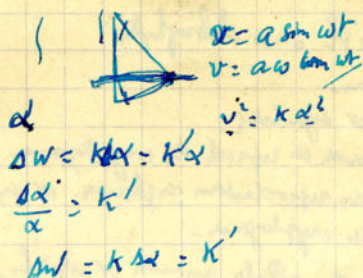 x = a sin ωt
v = aω cos ωt
α
v² = K α²
ΔW = KΔα = K'α
Δα/α = K'
ΔW = K Δα = K'